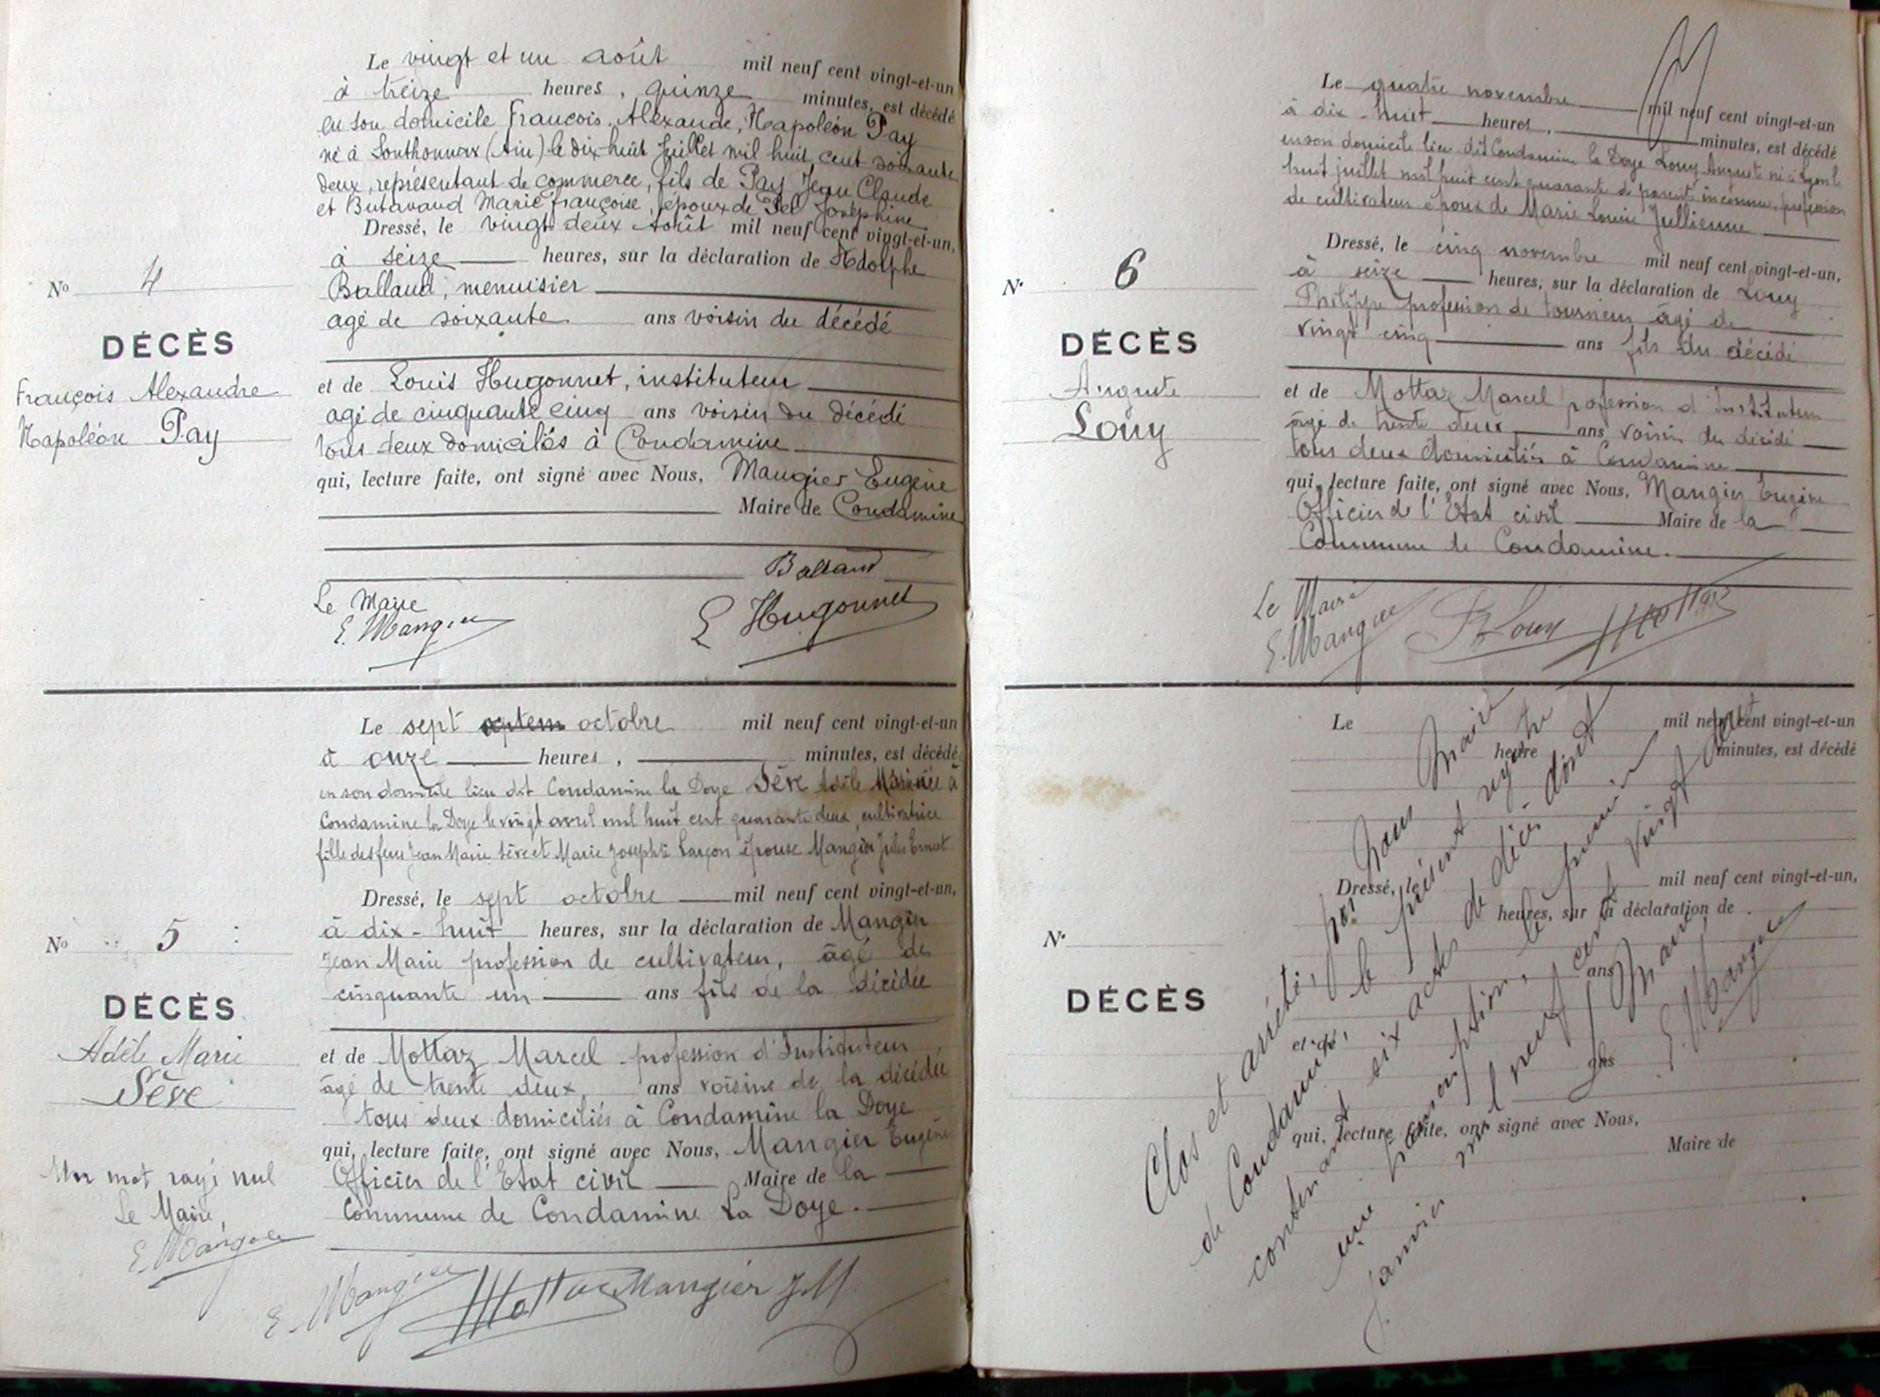 Le vingt et un août mil neuf cent vingt-et-un
à treize heures, quinze minutes, est décédé
en son domicile François, Alexandre, Napoléon Pay
né à Sonthonnax (Ain) le dix-huit juillet mil huit cent soixante
deux, représentant de commerce, fils de Pay Jean Claude
et Butavand Marie françoise, époux de Pel Joséphine
Dressé, le vingt deux Août mil neuf cent vingt-et-un,
à seize heures, sur la déclaration de Adolphe
Balland, menuisier
agé de soixante ans voisin du décédé
et de Louis Hugonnet, instituteur
agé de cinquante cinq ans voisin du décédé
tous deux domiciliés à Condamine
qui, lecture faite, ont signé avec Nous, Mangier Eugène
Maire de Condamine
Balland
Le Maire
E. Mangier
L Hugonnet
No 4
DÉCÈS
François Alexandre
Napoléon Pay
Le sept octobre mil neuf cent vingt-et-un
à onze heures, minutes, est décédé
en son domicile lieu dit Condamine la Doye Sève Adèle Marie née à
Condamine la Doye le vingt avril mil huit cent quarante deux, cultivatrice
fille des feus Jean Marie Sève et Marie Josephte Lançon épouse Mangier Jules Ernest
Dressé, le sept octobre mil neuf cent vingt-et-un,
à dix-huit heures, sur la déclaration de Mangier
Jean Marie profession de cultivateur, âgé de
cinquante un ans fils de la décédée
et de Mottaz Marcel profession d'Instituteur
âgé de trente deux ans voisine de la décédée
tous deux domiciliés à Condamine la Doye
qui, lecture faite, ont signé avec Nous, Mangier Eugène
Officier de l'Etat civil Maire de la
Commune de Condamine La Doye.
No 5
DÉCÈS
Adèle Marie
Sève
Un mot rayé nul
Le Maire,
E. Mangier
E. Mangier Mottaz Mangier J M
Le quatre novembre mil neuf cent vingt-et-un
à dix-huit heures, minutes, est décédé
en son domicile lieu dit Condamine la Doye Louy Auguste né à Lyon le
huit juillet mil huit cent quarante de parents inconnus, profession
de cultivateur époux de Marie Louise Jullienne
Dressé, le cinq novembre mil neuf cent vingt-et-un,
à seize heures, sur la déclaration de Louy
Philippe profession de tourneur âgé de
vingt cinq ans fils du décédé
et de Mottaz Marcel profession d'Instituteur
âgé de trente deux ans voisin du décédé
tous deux domiciliés à Condamine
qui, lecture faite, ont signé avec Nous, Mangier Eugène
Officier de l'Etat civil Maire de la
Commune de Condamine.
Le Maire
E. Mangier Ph Louy Mottaz
No 6
DÉCÈS
Auguste
Louy
Le mil neuf cent vingt-et-un
heure minutes, est décédé
Dressé, le mil neuf cent vingt-et-un,
heures, sur la déclaration de
ans
et de
ans
qui, lecture faite, ont signé avec Nous,
Maire de
No
DÉCÈS
Clos et arrêté par nous Maire
de Condamine, le présent registre
contenant six actes de décès dont
une transcription, le premier
janvier mil neuf cent vingt deux
Maire,
E. Mangier